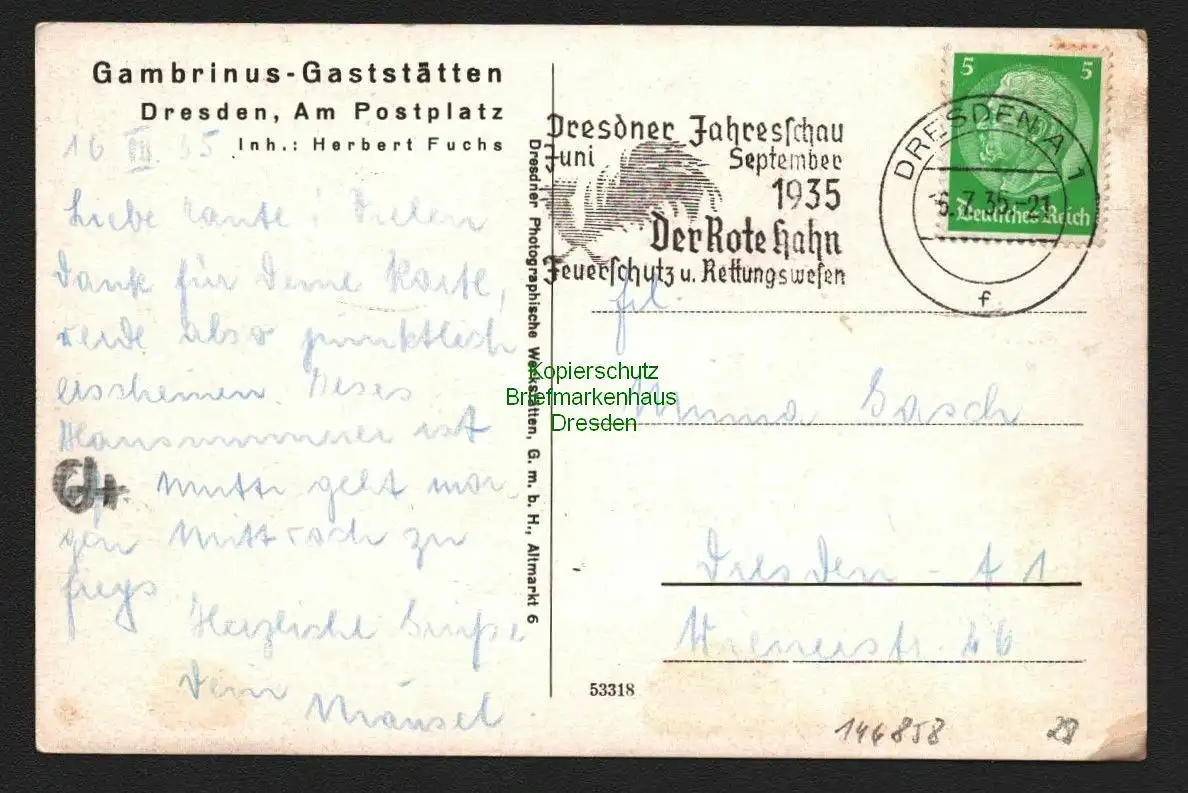 Gambrinus-Gaststätten
Dresden, Am Postplatz
Inh.: Herbert Fuchs
16 VII. 35
Liebe Tante! Vielen
Dank für Deine Karte,
werde also pünktlich
erscheinen. Dieses
ist
Mutti geht mor-
gen Mittwoch zu
Herzliche Grüße
Dein
Mäusel
Dresdner Photographische Werkstätten, G. m. b. H., Altmarkt 6
53318
Dresdner Jahresschau
Juni September
1935
Der Rote Hahn
Feuerschutz u. Rettungswesen
DRESDEN A 1
6.7.35-21
f
5 5
Deutsches Reich
Frl.
Kopierschutz
Briefmarkenhaus
Dresden
Minna Gasch
Dresden-A 1
26
146858
28